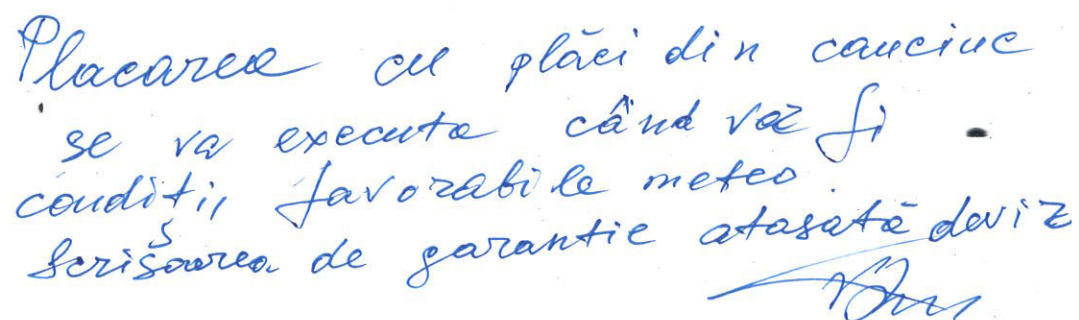 Placarea cu plăci din cauciuc
se va executa când va fi
condiții favorabile meteo.
Scrisoarea de garantie atasată deviz